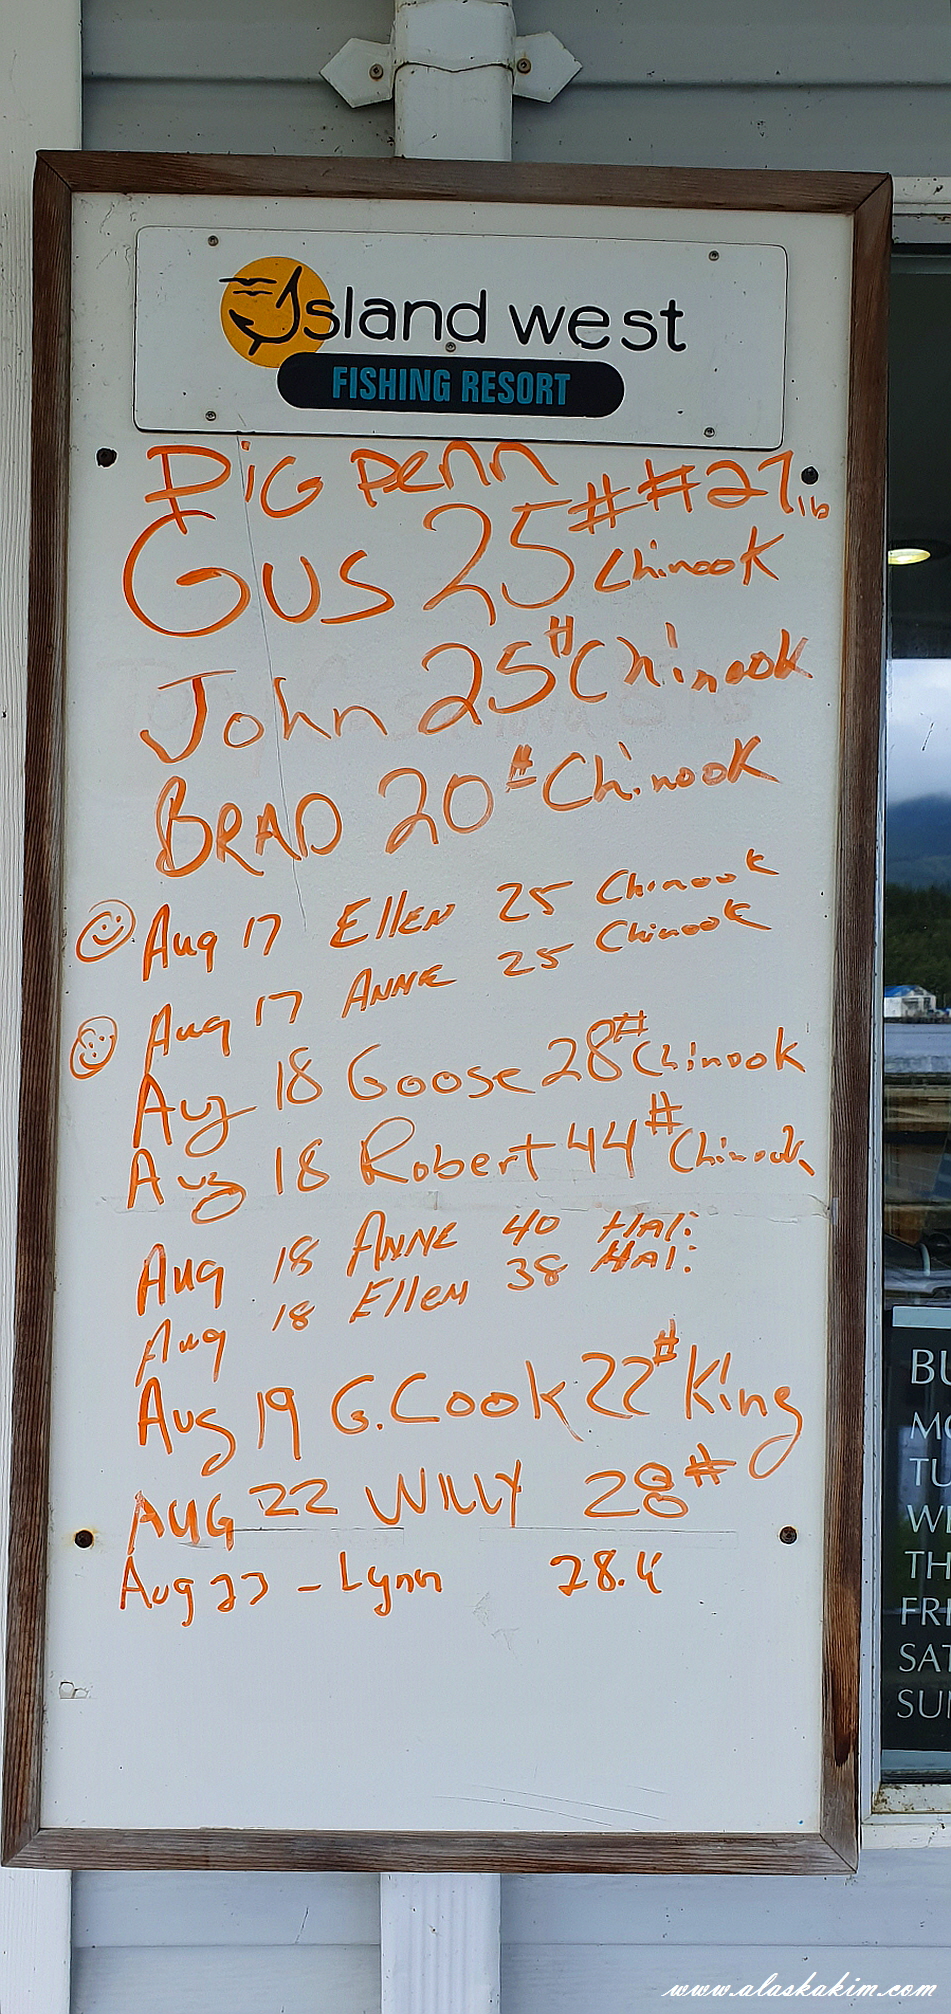 Island west
FISHING RESORT
PIG PENN ##27 lb
GUS 25 Chinook
John 25# Chinook
BRAD 20# Chinook
Aug 17 Ellen 25 Chinook
Aug 17 ANNE 25 Chinook
Aug 18 Goose 28# Chinook
Aug 18 Robert 44# Chinook
Aug 18 ANNE 40 HALi
Aug 18 Ellen 38 HALi
Aug 19 G. Cook 22# King
AUG 22 WILLY 28#
Aug 23 - Lynn 28.4
BU
MO
TU
WE
TH
FRI
SAT
SUN
www.alaskakim.com